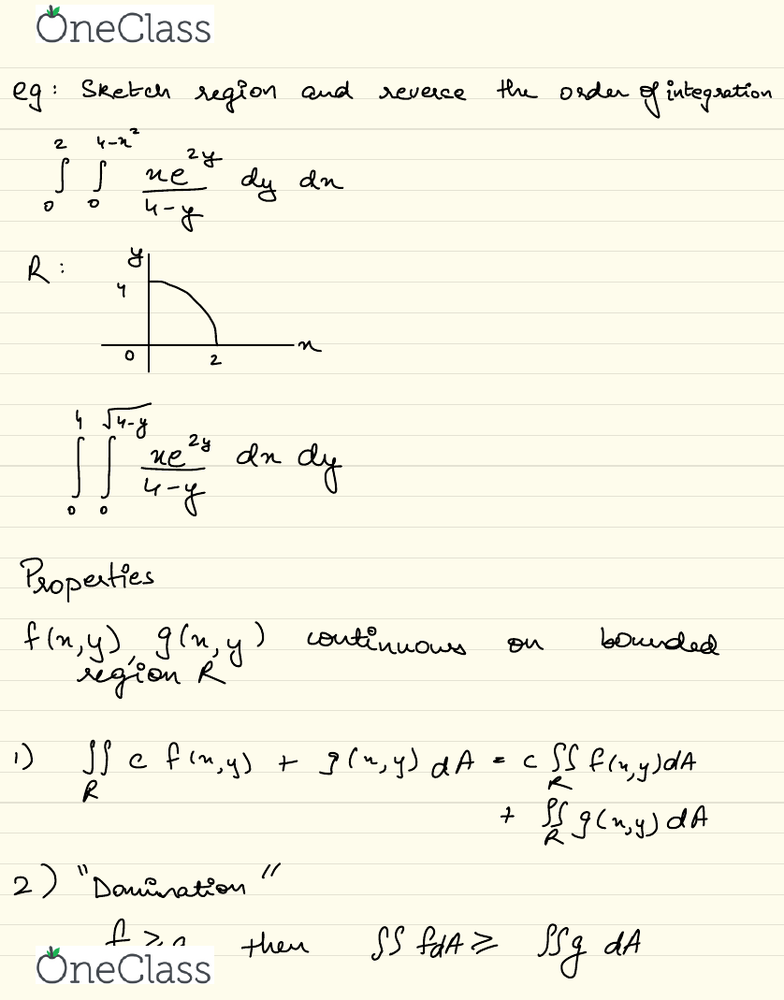 OneClass
eg: Sketch region and reverse the order of integration
∫₀² ∫₀^(4-x²) xe^(2y)/(4-y) dy dx
R:
y
4
0 2 x
∫₀⁴ ∫₀^(√(4-y)) xe^(2y)/(4-y) dx dy
Properties
f(x,y), g(x,y) continuous on bounded
region R
1) ∬_R c f(x,y) + g(x,y) dA = c ∬_R f(x,y) dA
+ ∬_R g(x,y) dA
2) "Domination"
f ≥ g then ∬ fdA ≥ ∬g dA
OneClass